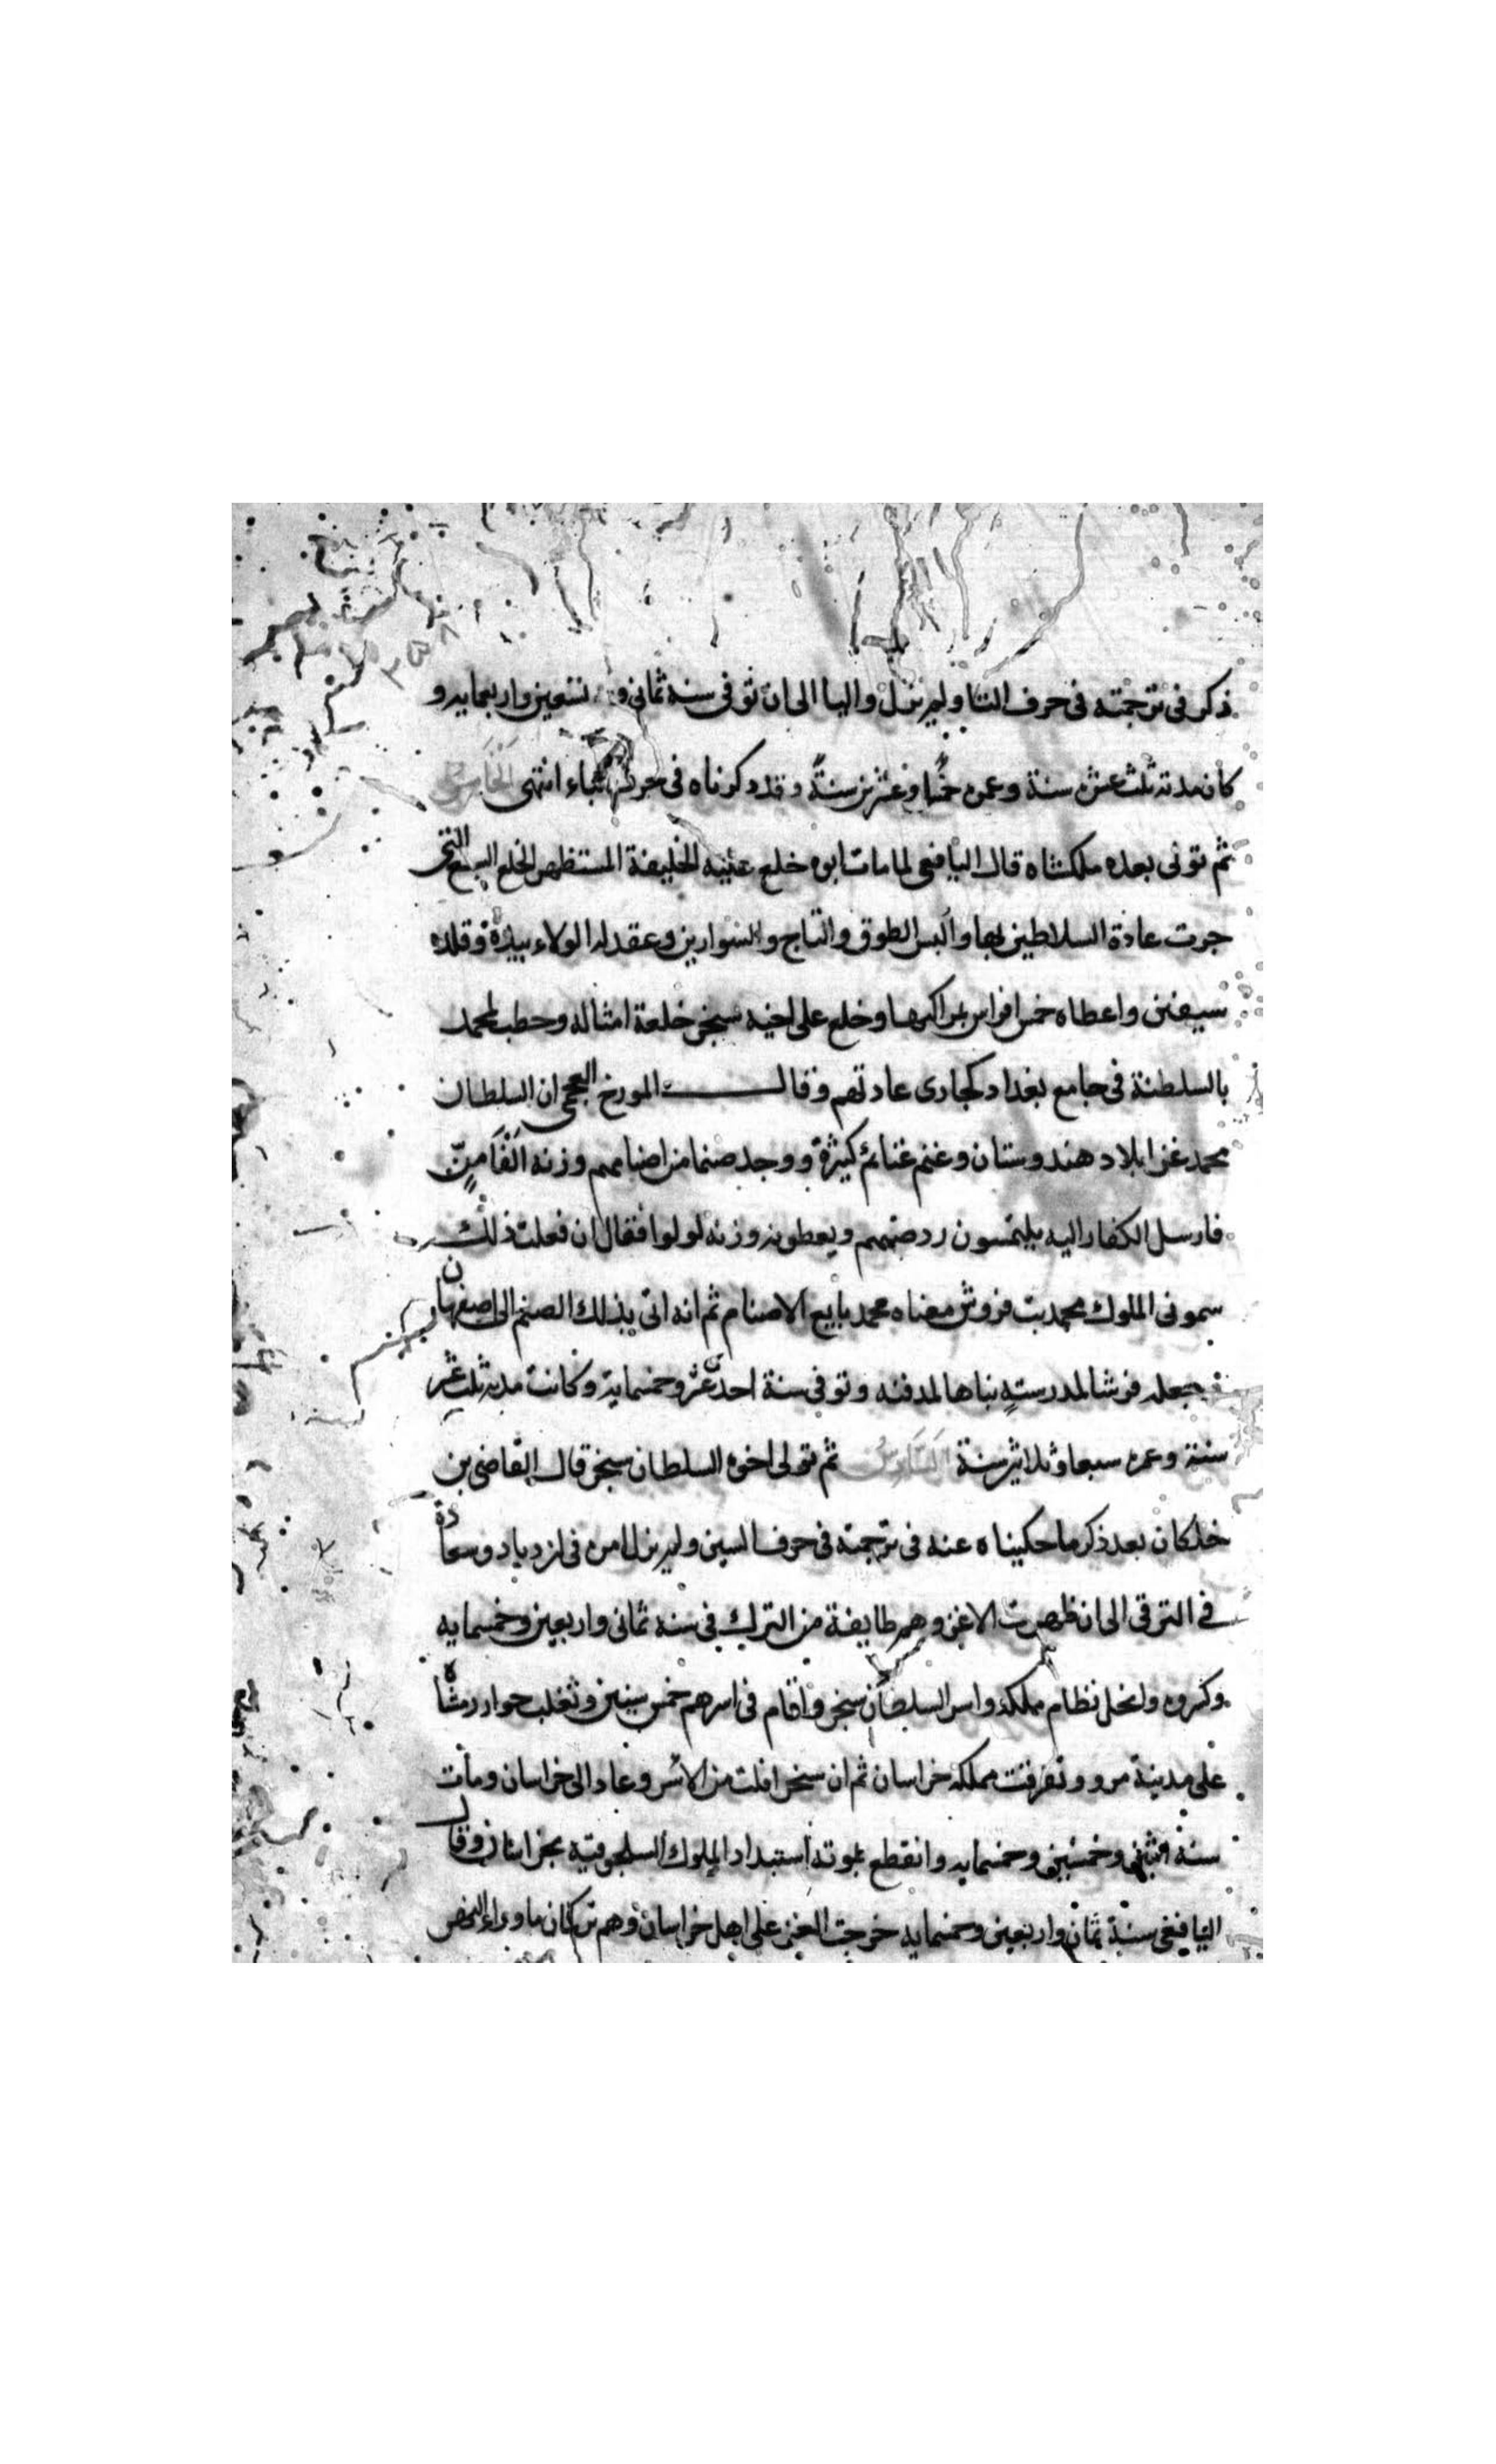 ٣٥٨
ذكر فى ترجمته فى حرف التا ولم يزل واليا الى ان توفى سنة ثمانى و تسعين واربعمايه و
كان مدته ثلث عشره سنة وعمره خمسا وعشرين سنةً وقد ذكرناه فى حرف الباء انتهى الخامس
ثم تولى بعده ملكشاه قال اليافعى لما مات ابوه خلع عليه الخليفة المستظهر الخلع السبع التى
جرت عادة السلاطين بها والبس الطوق والتاج والسوارين وعقد له الولاء بيده وقلده
سيفين واعطاه خمس افراس بمراكبها وخلع على اخيه سنجر خلعة امثاله وخطب لمحمد
بالسلطنة فى جامع بغداد كجارى عادتهم وقال المورخ العجمى ان السلطان
محمد غزا بلاد هندوستان وغنم غنائم كثيرة ووجد صنما من اصنامهم وزنه الفا منّ
فارسل الكفار اليه يلتمسون رد صنمهم ويعطونه وزنه لولوا فقال ان فعلت ذلك
سمونى الملوك محمد بت فروش معناه محمد بايع الاصنام ثم انه اتى بذلك الصنم الى اصفهان
فجعله فرشا لمدرسته بناها لمدفنه وتوفى سنة احد عشر وخمسماية وكانت مدته ثلث عشر
سنة وعمره سبعا وثلاثين سنة السادس ثم تولى اخوه السلطان سنجر قال القاضى بن
خلكان بعد ذكر ما حكيناه عنه فى ترجمته فى حرف السين ولم يزل امره فى ازدياد وسعادة
فى الترقى الى ان ظهرت الاغز وهم طايفة من الترك فى سنه ثمانى واربعين وخمسمايه
وكسروه وانحل نظام مملكته واسر السلطان سنجر واقام فى اسرهم خمس سنين وتغلب خوارزمشاه
على مدينة مرو وتفرقت مملكه خراسان ثم ان سنجر افلت من الاسر وعاد الى خراسان ومات
سنة اثنتى وخمسين وخمسمايه وانقطع بموته استبداد الملوك السلجوقية بخراسان وقال
اليافعى سنة ثمان واربعين وخمسمايه خرجت الغز على اهل خراسان وهم تركمان ماوراء النهر